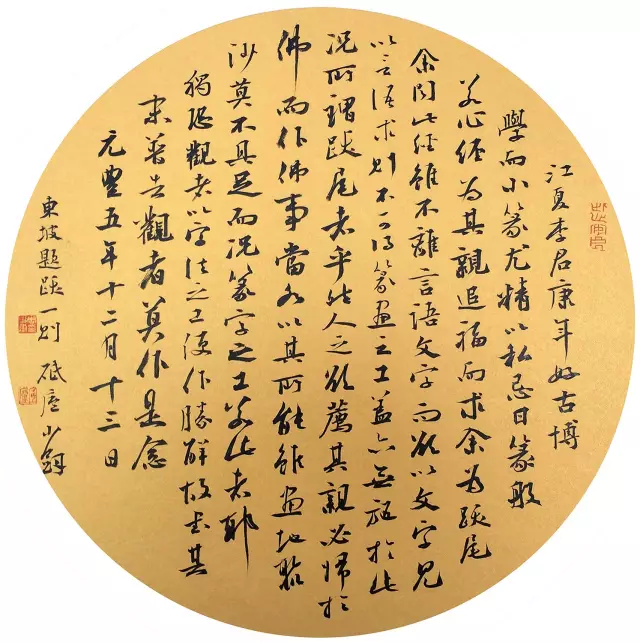 江夏李君康年好古博
學而小篆尤精以私忌日篆般
若心經為其親追福而求余為跋尾
余聞此經雖不離言語文字而欲以文字見
以言語求則不可得篆畫之工蓋亦無施於此
況所謂跋尾者乎然人之欲薦其親必歸於
佛而作佛事當各以其所能雖畫地聚
沙莫不具足而況篆字之工若此者耶
獨恐觀者以字法之工使作勝解故書其
末普告觀者莫作是念
元豐五年十二月十三日
東坡題跋一則 砥廬小